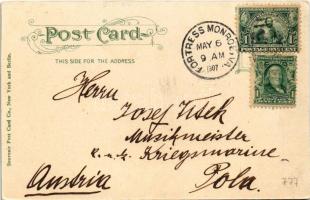 Post Card
THIS SIDE FOR THE ADDRESS
FORTRESS MONROE, VA.
MAY 6
9 AM
1907
POSTAGE ONE CENT
Herrn
Josef
Musikmeister
k. u. k. Kriegsmarine
Austria Pola.
Souvenir Post Card Co., New York and Berlin.
777